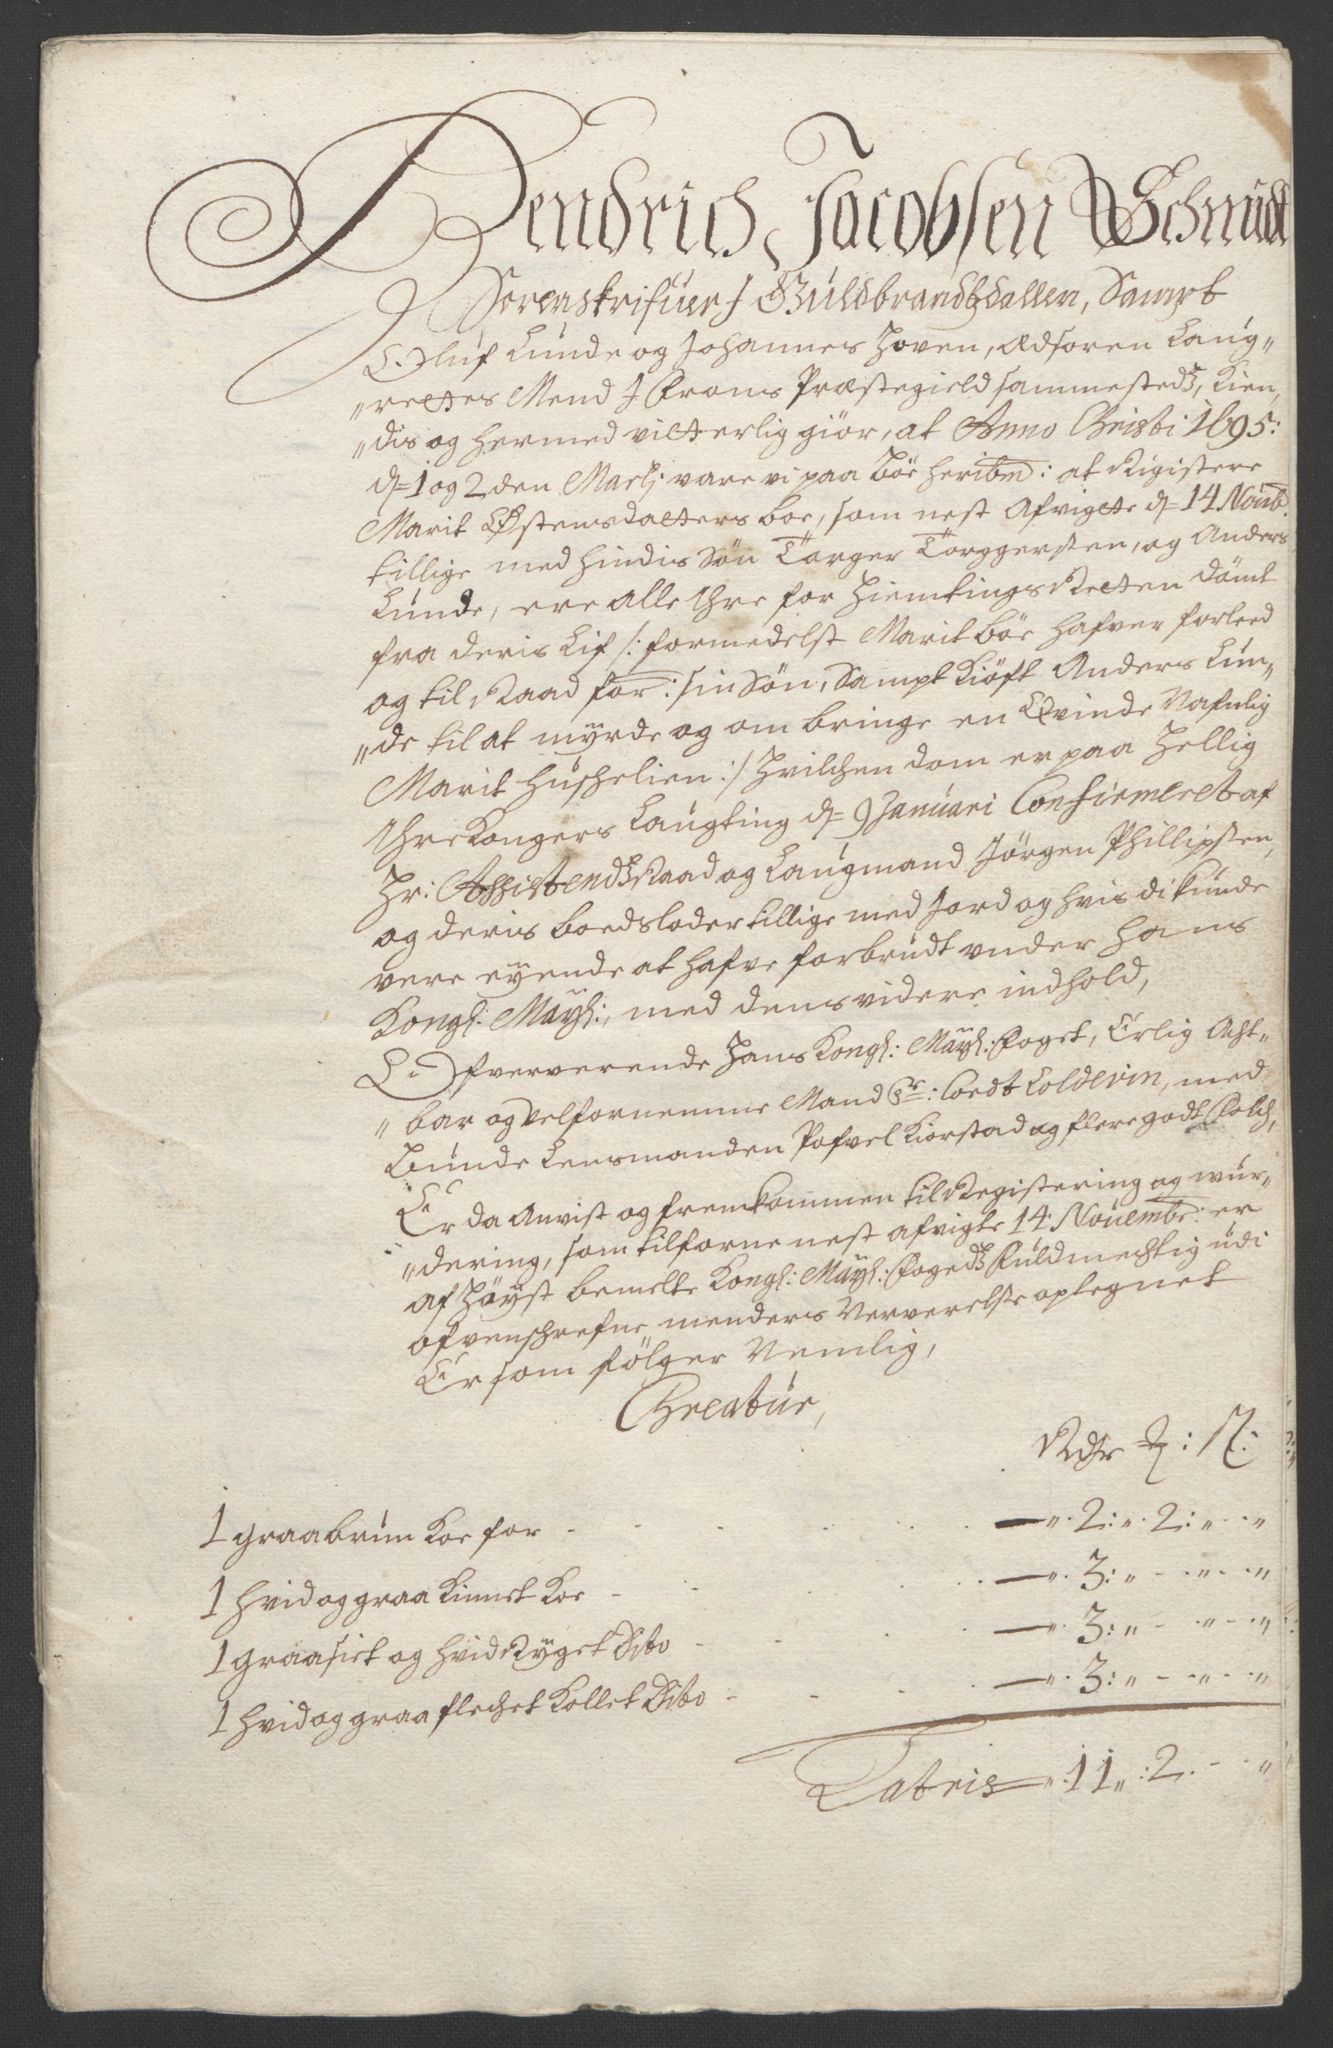 Hendrich Jacobsen Schmidt
Sorenskrifuer J Guldbrandtzdallen, Sampt
Oluf Lunde og Johannes Hoven, Edsoren Laug„
„rettes Mend J Froms Præstegield sammestedtz, Kien„
„dis og hermed vitterlig giör, at Anno Christi 1695:
d= 1 og 2 den Martj vare vi paa Böe heribm: at Rigistere
Marit Østensdatters boe, som nest Afvigte d= 14 Novb.
tillige med hindis Sön Törger Törggersten, og Anders
Lunde, ere alle thre for Hiemtings Retten dömt
fra deris Lif /: formedelst Marit böe hafver forleed
og til Raad for: sin Sön, Sampt Kiöft Anders Lun„
„de til at myrde og om bringe en Qvinde Nafnlig
Marit Hushelien :/ Hvilchen dom er paa Hellig
thre Kongers Laugting d= 9 Januari Confirmeret af
Hr: Assistendtz Raad og Laugmand Jörgen Phillipsten,
og deris boedsloder tillige med Jord og hvis di kunde
vere eyende at hafve forbrudt under Hans
Kongl: Mayt:, med dens videre indhold,
Ofververende Hans Kongl: Mayt: Foget, Erlig Acht„
„bar og velfornemme Mand Sr: Cordt Coldevin, med
Bunde Lensmanden Pofvel Kiorstad og flere godt Folch,
Er da Anvist og fremkommen til Registering og wur„
„dering, som tilforne nest afvigte 14 Novembr: er
af Höyst bemelte Kongl: Mayt: Fogedtz Fuldmechtig udi
ofvenschrefne menders Ververelse optegnet
Er som fölger Nemlig,
Creatur,
Rdr : :
1 graabrun Koe for — 2: „ 2: „ „
1 hvid og graa Kinnet Koe — 3: „ „ „
1 graasiet og hvid Rygget Dito — 3: „ „ „
1 hvid og graa flechet Kollet Dito — 3: „ „ „
Lateris = 11 „: 2. „